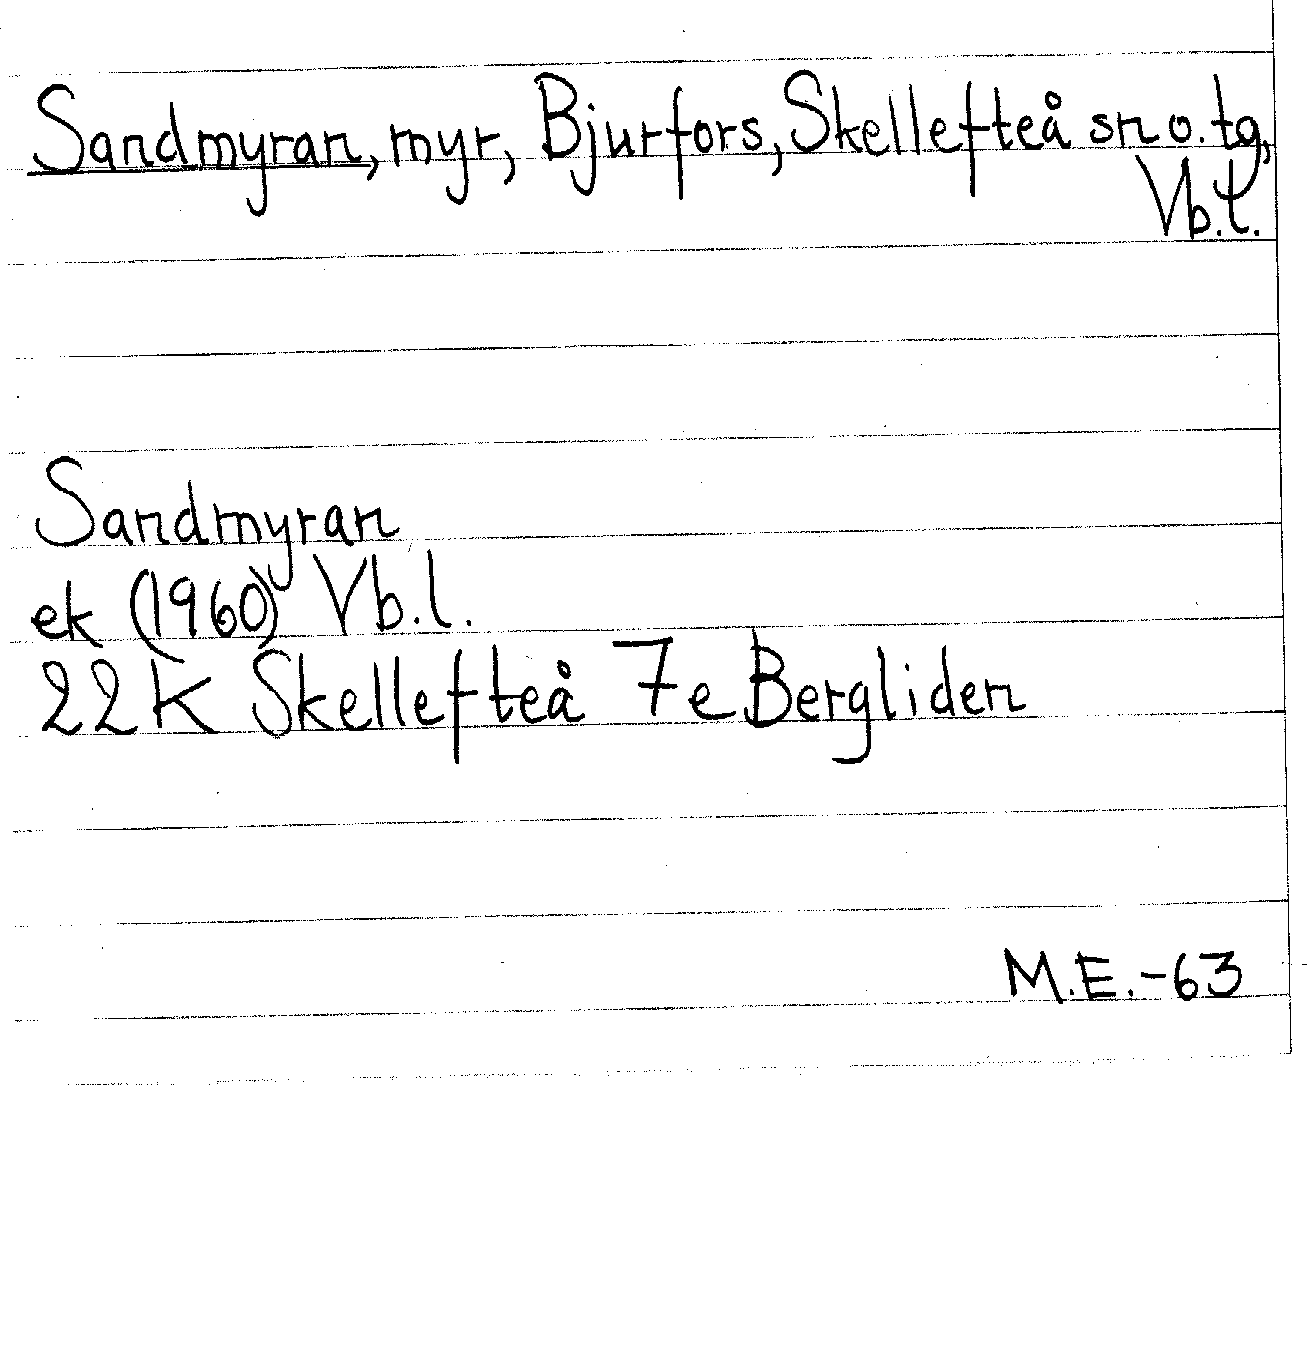 Sandmyran, myr, Bjurfors, Skellefteå sn o. tg,
Vb.l.
Sandmyran
ek (1960) Vb.l.
22K Skellefteå 7e Bergliden
M.E.-63